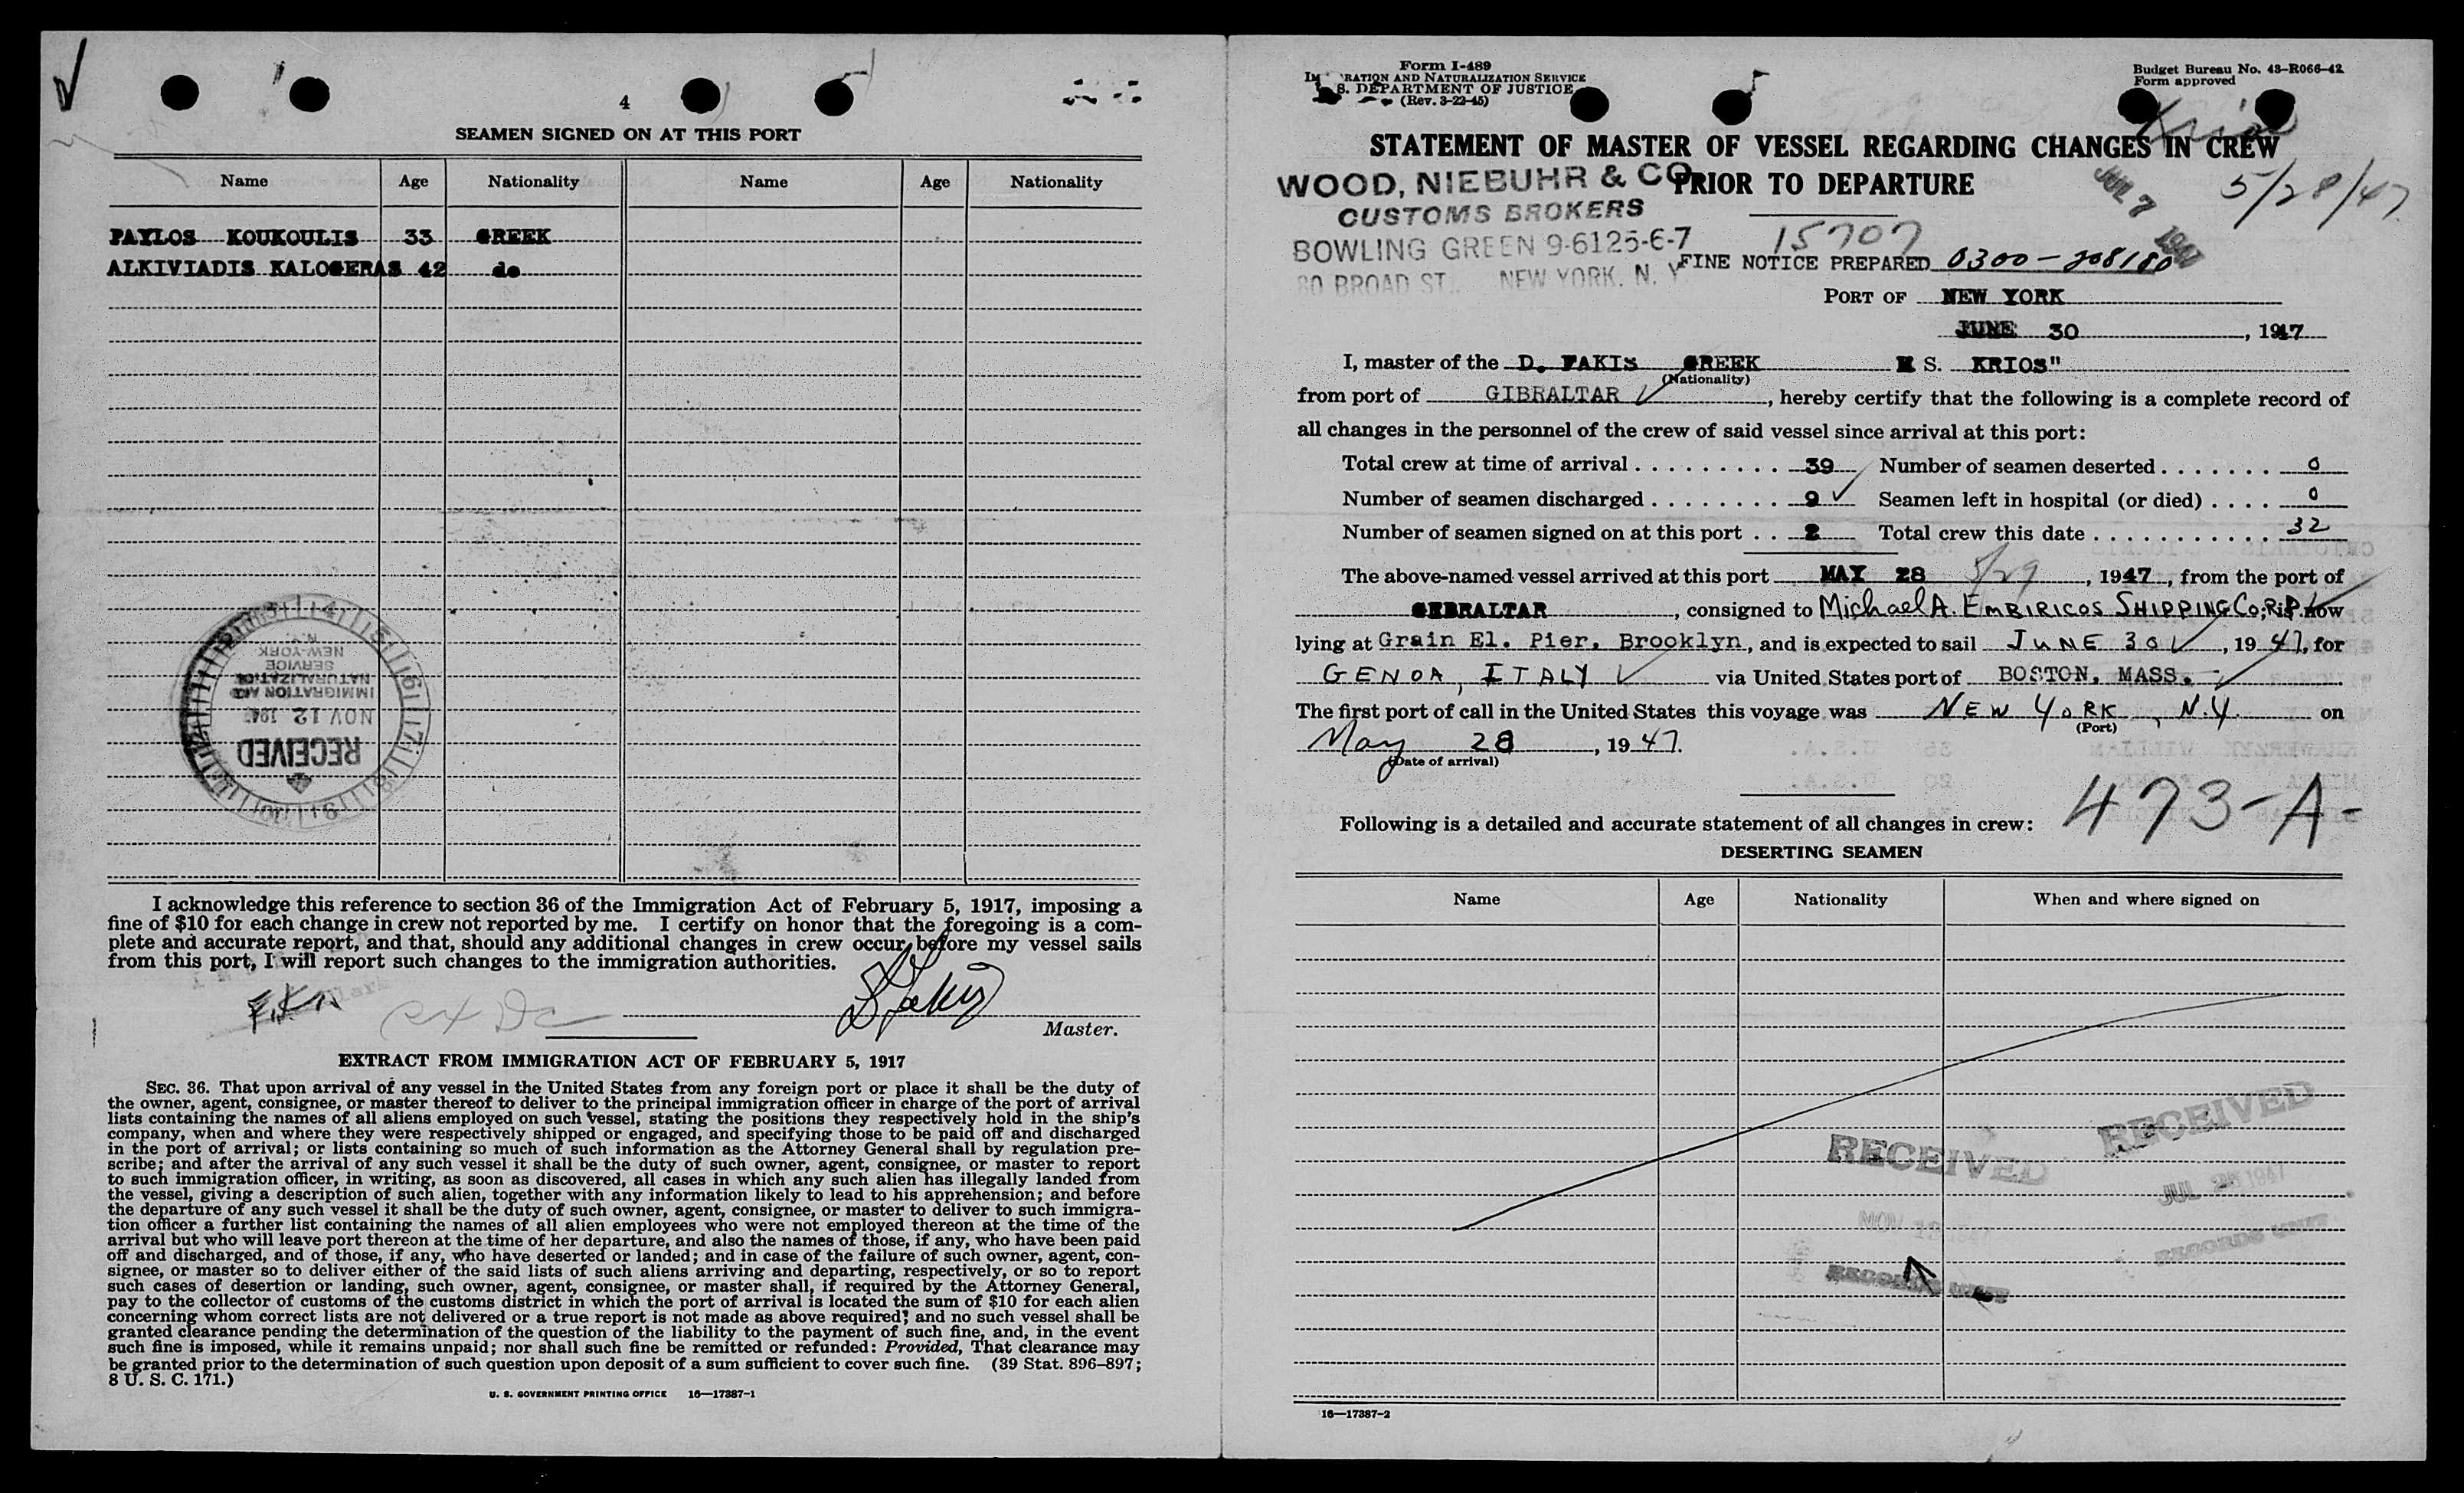 4
SEAMEN SIGNED ON AT THIS PORT
Name Age Nationality Name Age Nationality
PAYLOS KOUKOULIS 33 GREEK
ALKIVIADIS KALOGERAS 42 do
NEW-YORK
SERVICE
NATURALIZATION
IMMIGRATION AND
NOV 12 194
RECEIVED
I acknowledge this reference to section 36 of the Immigration Act of February 5, 1917, imposing a
fine of $10 for each change in crew not reported by me. I certify on honor that the foregoing is a com-
plete and accurate report, and that, should any additional changes in crew occur before my vessel sails
from this port, I will report such changes to the immigration authorities.
Master.
EXTRACT FROM IMMIGRATION ACT OF FEBRUARY 5, 1917
SEC. 36. That upon arrival of any vessel in the United States from any foreign port or place it shall be the duty of
the owner, agent, consignee, or master thereof to deliver to the principal immigration officer in charge of the port of arrival
lists containing the names of all aliens employed on such vessel, stating the positions they respectively hold in the ship's
company, when and where they were respectively shipped or engaged, and specifying those to be paid off and discharged
in the port of arrival; or lists containing so much of such information as the Attorney General shall by regulation pre-
scribe; and after the arrival of any such vessel it shall be the duty of such owner, agent, consignee, or master to report
to such immigration officer, in writing, as soon as discovered, all cases in which any such alien has illegally landed from
the vessel, giving a description of such alien, together with any information likely to lead to his apprehension; and before
the departure of any such vessel it shall be the duty of such owner, agent, consignee, or master to deliver to such immigra-
tion officer a further list containing the names of all alien employees who were not employed thereon at the time of the
arrival but who will leave port thereon at the time of her departure, and also the names of those, if any, who have been paid
off and discharged, and of those, if any, who have deserted or landed; and in case of the failure of such owner, agent, con-
signee, or master so to deliver either of the said lists of such aliens arriving and departing, respectively, or so to report
such cases of desertion or landing, such owner, agent, consignee, or master shall, if required by the Attorney General,
pay to the collector of customs of the customs district in which the port of arrival is located the sum of $10 for each alien
concerning whom correct lists are not delivered or a true report is not made as above required; and no such vessel shall be
granted clearance pending the determination of the question of the liability to the payment of such fine, and, in the event
such fine is imposed, while it remains unpaid; nor shall such fine be remitted or refunded: Provided, That clearance may
be granted prior to the determination of such question upon deposit of a sum sufficient to cover such fine. (39 Stat. 896–897;
8 U. S. C. 171.)
U. S. GOVERNMENT PRINTING OFFICE 16—17387-1
Form I-489
RATION AND NATURALIZATION SERVICE
S. DEPARTMENT OF JUSTICE
(Rev. 3-22-45)
Budget Bureau No. 43-R066-42
Form approved
Krios
STATEMENT OF MASTER OF VESSEL REGARDING CHANGES IN CREW
PRIOR TO DEPARTURE
WOOD, NIEBUHR & CO
CUSTOMS BROKERS
BOWLING GREEN 9-6125-6-7
80 BROAD ST., NEW YORK, N. Y.
JUL 7 1947
5/28/47
15707
FINE NOTICE PREPARED 0300-
PORT OF NEW YORK
JUNE 30, 1947
I, master of the D. FAKIS GREEK M S. KRIOS"
(Nationality)
from port of GIBRALTAR, hereby certify that the following is a complete record of
all changes in the personnel of the crew of said vessel since arrival at this port:
Total crew at time of arrival . . . . . . . . . . 39 Number of seamen deserted . . . . . . . 0
Number of seamen discharged . . . . . . . . 9 Seamen left in hospital (or died) . . . . 0
Number of seamen signed on at this port . . 2 Total crew this date . . . . . . . . . . . . 32
The above-named vessel arrived at this port MAY 28 5/29, 1947, from the port of
GIBRALTAR, consigned to Michael A. EMBIRICOS SHIPPING Co; is now
lying at Grain El. Pier, Brooklyn, and is expected to sail JUNE 30, 1947, for
GENOA, ITALY via United States port of BOSTON, MASS.
The first port of call in the United States this voyage was NEW YORK, N.Y. on
(Port)
May 28, 1947.
(Date of arrival)
473-A-
Following is a detailed and accurate statement of all changes in crew:
DESERTING SEAMEN
Name Age Nationality When and where signed on
RECEIVED
NOV 13 1947
RECORDS UNIT
RECEIVED
JUL 25 1947
RECORDS UNIT
16—17387-2